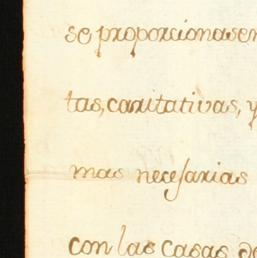 se proporcionasen
tas, caritativas, y
mas necesarias
con las casas de